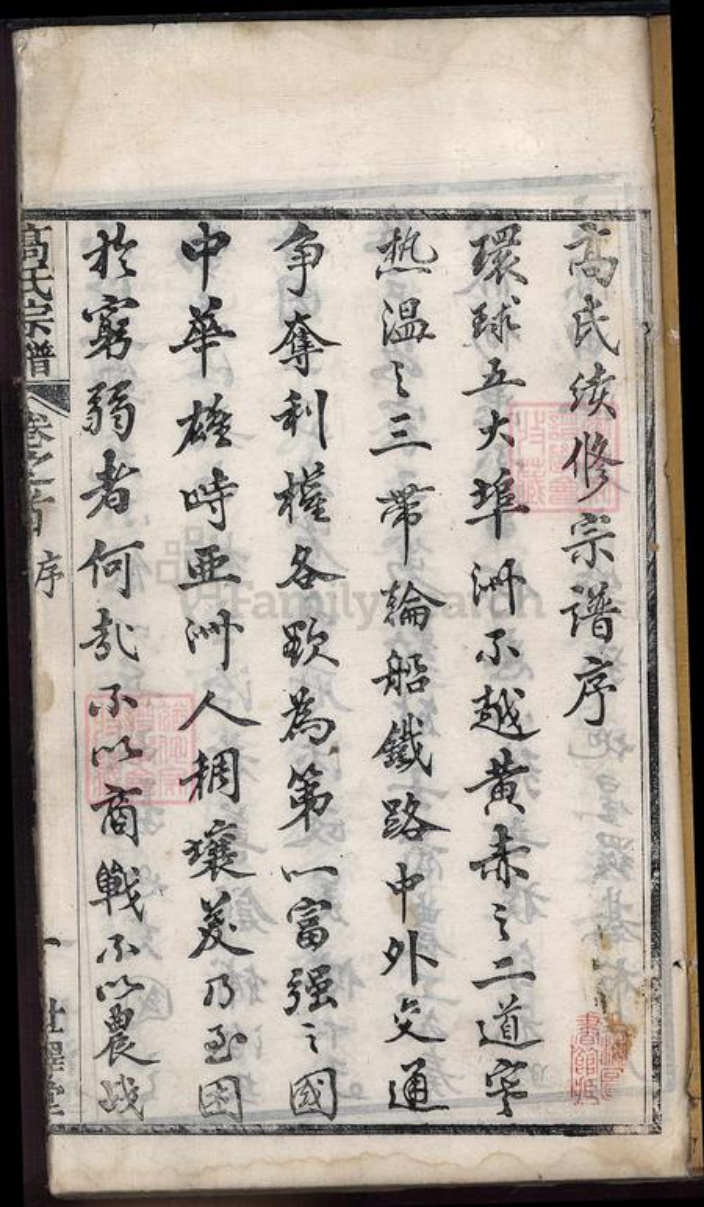 高氏续修宗谱序
環球五大埠洲不越黄赤之二道寒
热温之三带輪船鐵路中外交通
争奪利權各欲為第一富强之國
中華雄峙亞洲人稠壤美乃至困
於窮弱者何哉不以商戰不以農战
高氏宗譜
卷之首
序
一
世澤堂
FamilySearch